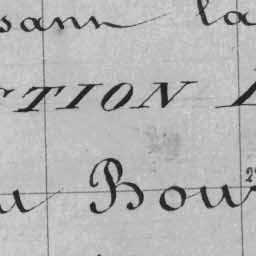 sann la
CTION
u Bour